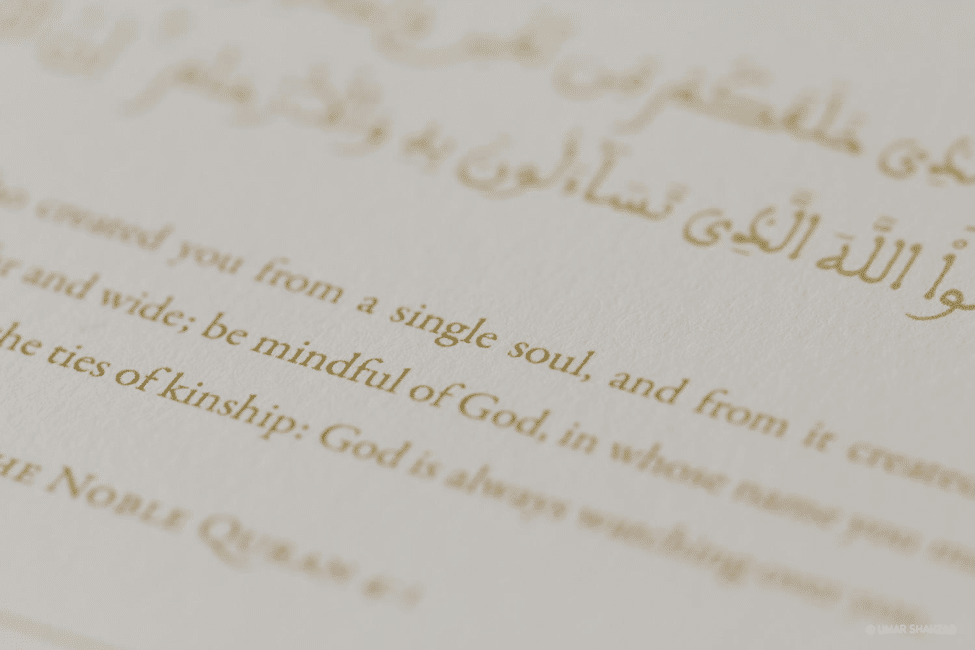 خَلَقَكُم مِّن نَّفْسٍ
وا۟ اللَّهَ الَّذِى تَسَآءَلُونَ بِهِ وَالْأَرْحَامَ
created you from a single soul, and from it created
and wide; be mindful of God, in whose name you
the ties of kinship: God is always watching over you.
THE NOBLE QURAN 4:1
© UMAR SHAMSI